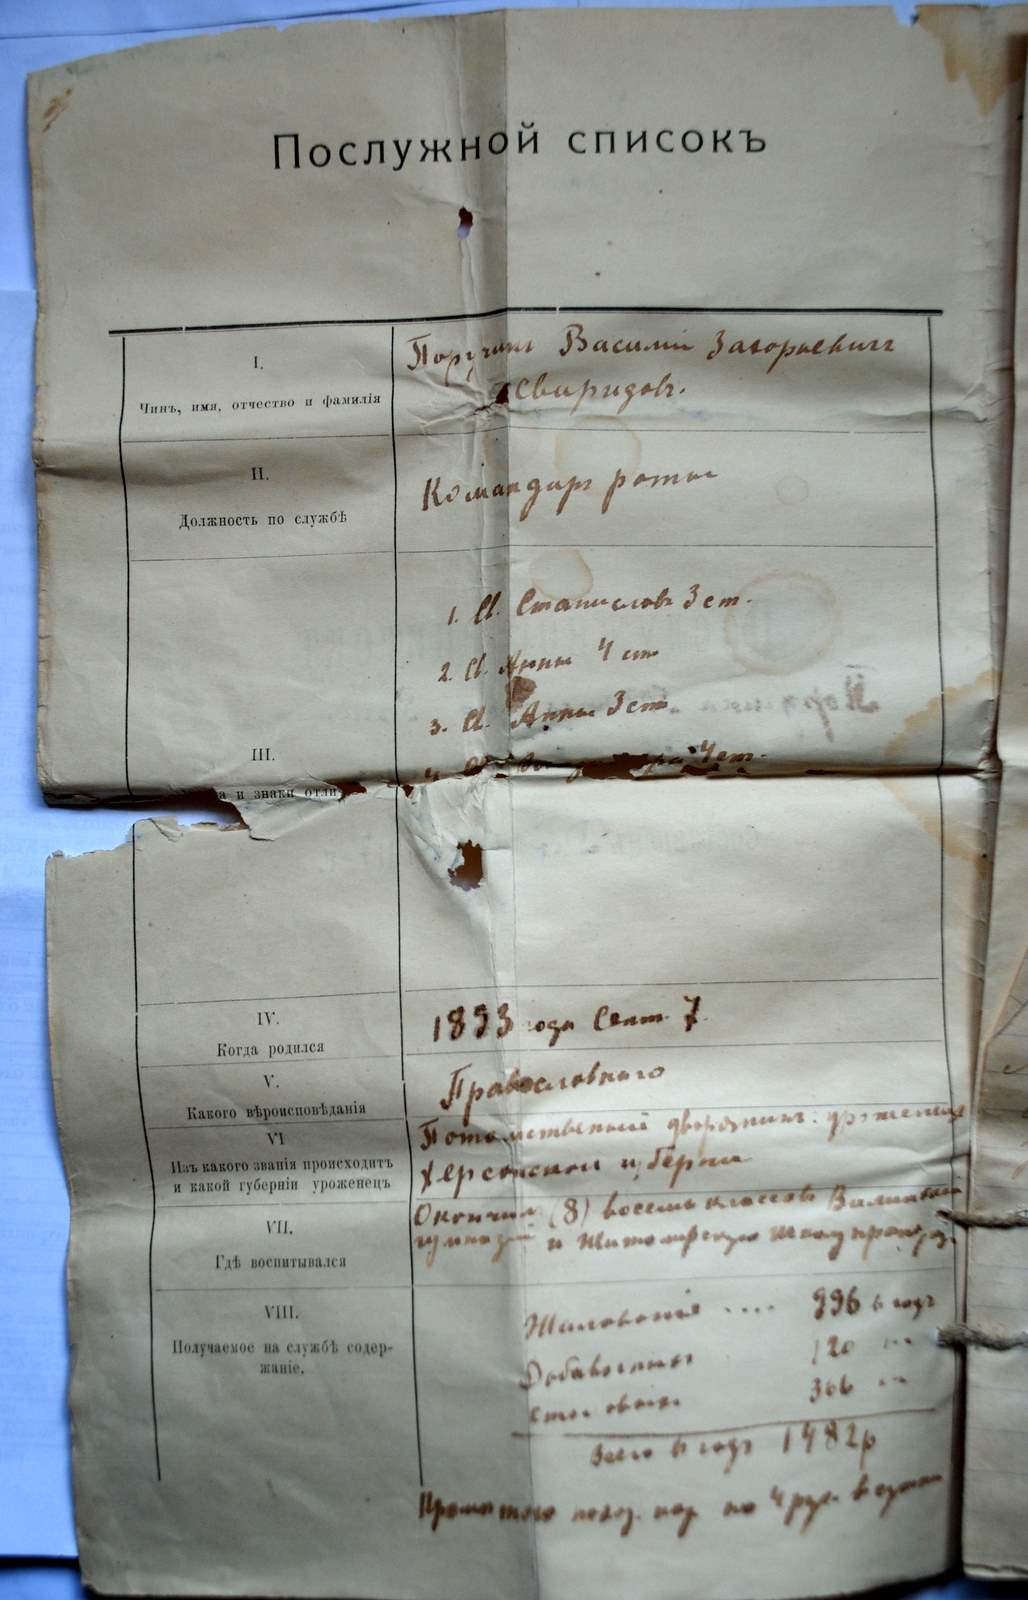 Послужной списокъ
I.
Чинъ, имя, отчество и фамилія
Поручикъ Василій
Свиридовъ.
II.
Должность по службѣ
Командиръ роты
1. Св. Станислава 3 ст.
2. Св. Анны 4 ст
3. Св. Анны 3 ст
4 ст.
III.
а и знаки отли
IV.
Когда родился
1893 года Сент. 7.
V.
Какого вѣроисповѣданія
Православнаго
VI
Изъ какого званія происходитъ
и какой губерніи уроженецъ
Потомственный дворянинъ. уроженецъ
Херсонской губерніи
VII.
Гдѣ воспитывался
Окончилъ (8) восемь классовъ
гимназіи и Житомирскую школу прапорщ.
VIII.
Получаемое на службѣ содер-
жаніе.
Жалованія .... 996 в годъ
Добавочныхъ 120 "
Столовыхъ 366 "
Всего в годъ 1482 р
Кромѣ того поход. пор. по 4 руб. в сутки